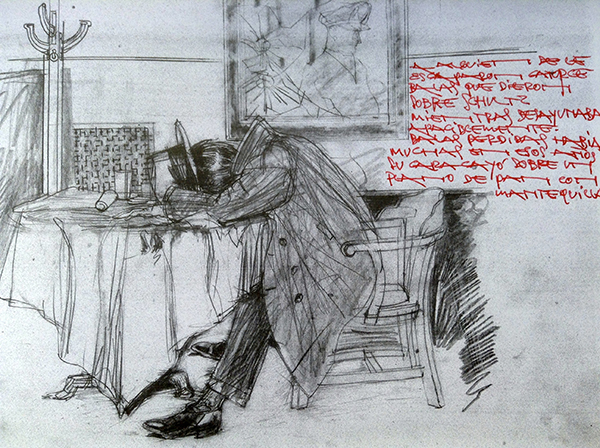 A ALGUIEN SE LE
ESCAPARON CATORCE
BALAS QUE DIERON
SOBRE SCHULTZ
MIENTRAS DESAYUNABA
APACIBLEMENTE.
BALAS PERDIDAS HABIA
MUCHAS EN ESOS AÑOS
SU CARA CAYO SOBRE UN
PLATO DE PAN CON
MANTEQUILLA